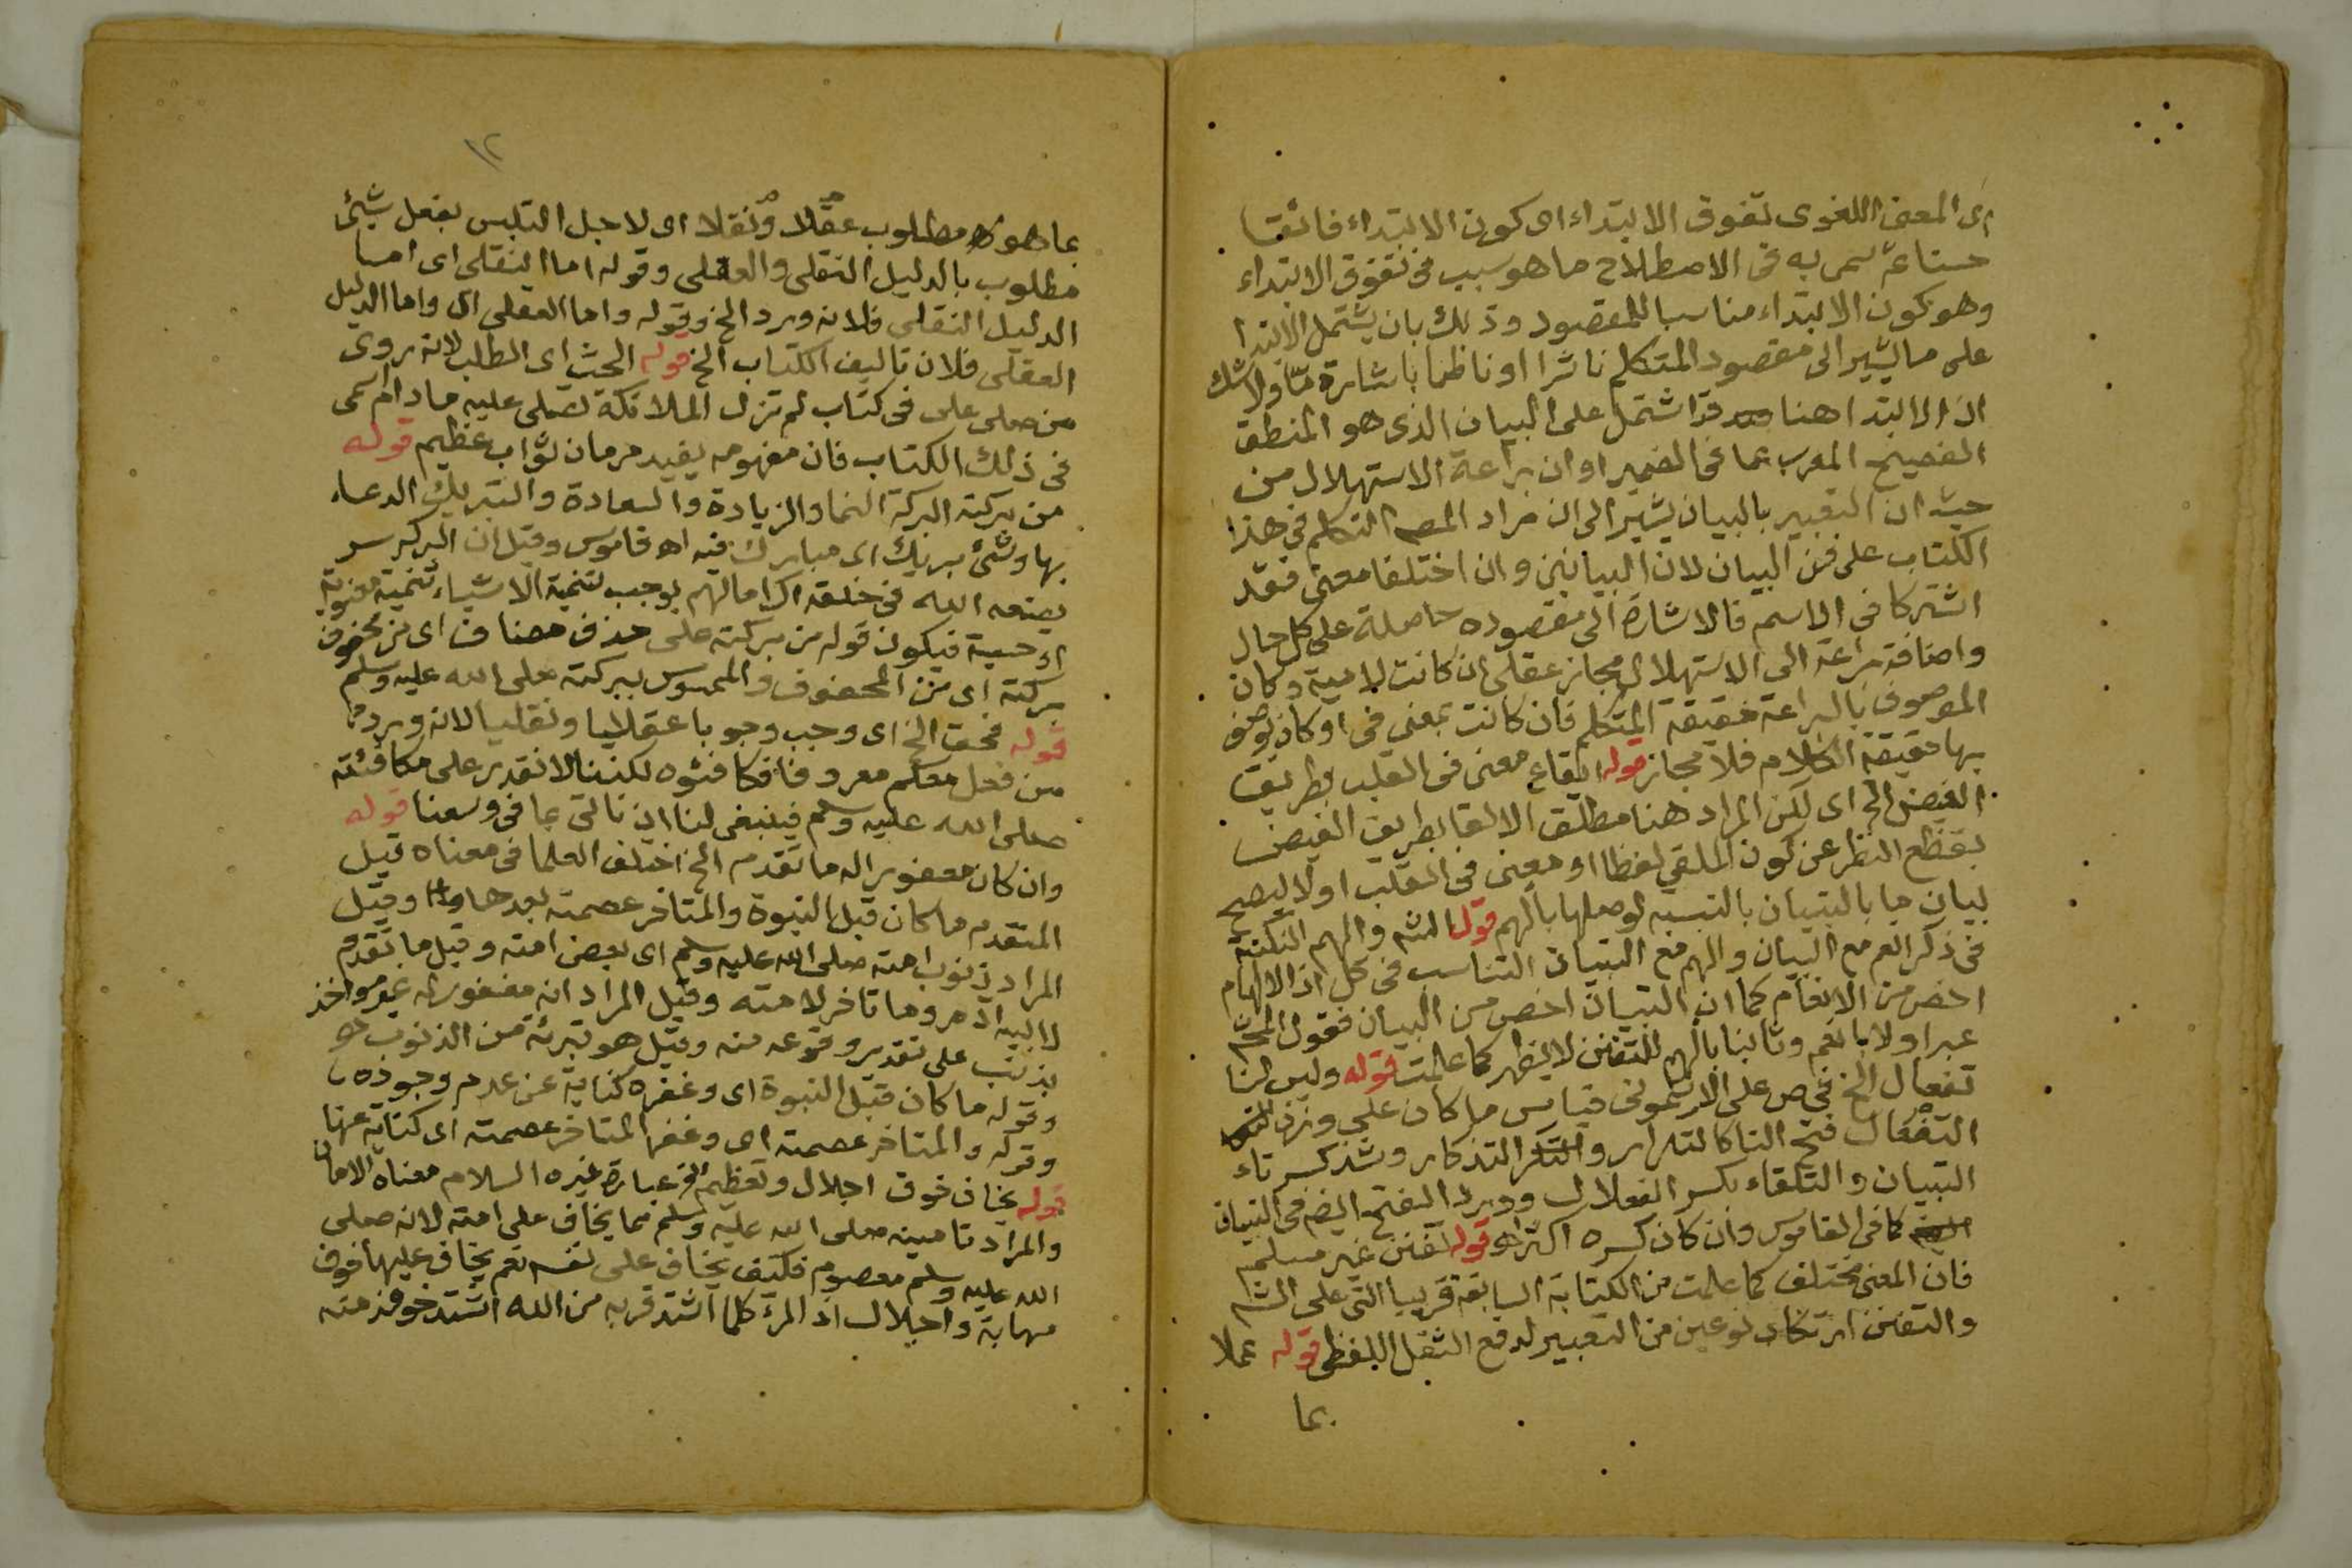 اى المعنى اللغوى تفوق الابتداء اى كون الابتداء فائقا
حسنا ثم سمى به فى الاصطلاح ما هو سبب فى تفوق الابتداء
وهو كون الابتداء مناسبا للمقصود وذلك بان يشتمل الابتدا
على ما يشير الى مقصود المتكلم ناثرا او ناظما باشارة مّا ولا شك
ان الابتدا هنا قد اشتمل على البيان الذى هو المنطق
الفصيح المعرب عما فى الضمير او ان براعة الاستهلال من
حيث ان التعبير بالبيان يشير الى ان مراد المصـ التكلم فى هذا
الكتاب على فن البيان لان البيانين وان اختلفا معنى فقد
اشتركا فى الاسم فالاشارة الى مقصوده حاصلة على كل حال
واضافة براعة الى الاستهلال مجاز عقلى ان كانت لامية وكان
الموصوف بالبراعة حقيقة المتكلم فان كانت بمعنى فى او كان يوصف
بها حقيقة الكلام فلا مجاز قوله ايقاع معنى فى القلب بطريق
الفيض الخ اى لكن المراد هنا مطلق الالقا بطريق الفيض
بقطع النظر عن كون الملقى لفظا او معنى فى القلب او لا ليصح
بيان ما بالتبيان بالنسبه لوصلها بالهم قول الشـ والهم النكتة
فى ذكر انعم مع البيان والهم مع التبيان التناسب فى كل اذ الالهام
اخص من الانعام كما ان التبيان اخص من البيان فقول المحشـ
عبر اولا بانعم وثانيا بالهم للتفنن لا يظهر كما علمت قوله وليس لنا
تفعال الخ نص على الاشمونى قياس ما كان على وزن
التفعال فتح التا كالتكرار والتذكار وشذ كسر تاء
التبيان والتلقاء بكسر الفعلال وورد الفتح ايضا فى التبيان
كما فى القاموس وان كان كسره اكثر اهـ قوله تفنن غير مسلم
فان المعنى مختلف كما علمت من الكتابة السابقة قريبا التى على الشـ
والتفنن ارتكاب نوعين من التعبير لدفع الثقل اللفظى قوله عملا
بما
١٢
بما هو مطلوب عقلا ونقلا اى لاجل التلبس بفعل شيئ
مطلوب بالدليل النقلى والعقلى وقوله اما النقلى اى اما
الدليل النقلى فلانه ورد الخ وقوله واما العقلى اى واما الدليل
العقلى فلان تاليف الكتاب الخ قوله الحث اى الطلب لانه روى
من صلى على فى كتاب لم تزل الملائكة تصلى عليه ما دام اسمى
فى ذلك الكتاب فان مفهومه يفيد حرمان ثواب عظيم قوله
من بركته البركة النما والزيادة والسعادة والتبريك الدعاء
بها وشئ بريك اى مبارك فيه اهـ قاموس وقيل ان البركة سر
يضعه الله فى خلقه اكراما لهم يوجب تنمية الاشياء تنمية معنوية
او حسية فيكون قوله من بركته على حذف مضاف اى من محفوف
بركته اى من المحفوف والملموس ببركته صلى الله عليه وسلم
قوله فحق الخ اى وجب وجوبا عقليا ونقليا لانه ورد
من فعل معكم معروفا فكافئوه لكننا لا نقدر على مكافئته
صلى الله عليه وسلم فينبغى لنا ان ناتى بما فى وسعنا قوله
وان كان مغفورا له ما تقدم الخ اختلف العلما فى معناه قيل
المتقدم ما كان قبل النبوة والمتاخر عصمته بعدها وقيل
المراد ذنوب امته صلى الله عليه وسلم اى بعض امته وقيل ما تقدم
لابيه آدم وما تاخر لامته وقيل المراد انه مغفور له غير مواخذ
بذنب على تقدير وقوعه منه وقيل هو تبرئة من الذنوب
وقوله ما كان قبل النبوة اى وغفره كناية عن عدم وجوده
وقوله والمتاخر عصمته اى وغفر المتاخر عصمته اى كناية عنها
قوله يخاف خوف اجلال وتعظيم فى عبارة غيره السلام معناه الامان
والمراد تامينه صلى الله عليه وسلم مما يخاف على امته لانه صلى
الله عليه وسلم معصوم فكيف يخاف على نفسه نعم يخاف عليها خوف
مهابة واجلال اذ المرء كلما اشتد قربه من الله اشتد خوفه منه